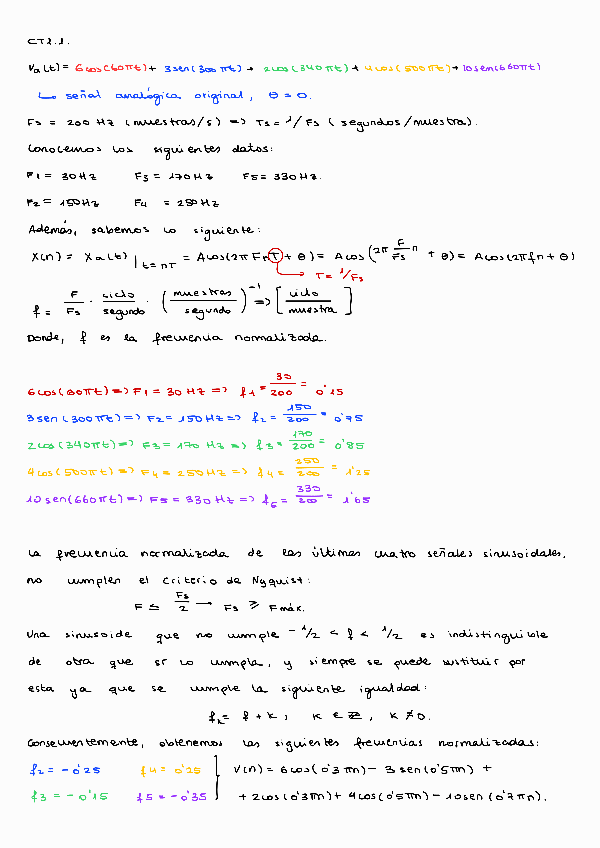 CT2.1.
Va(t) = 6cos(60πt) + 3sen(300πt) + 2cos(340πt) + 4cos(500πt) + 10sen(660πt)
↳ señal analógica original, θ = 0.
Fs = 200 Hz (muestras/s) => Ts = 1/Fs (segundos/muestra).
Conocemos los siguientes datos:
F1 = 30Hz F3 = 170Hz F5 = 330Hz.
F2 = 150Hz F4 = 250Hz
Además, sabemos lo siguiente:
X(n) = Xa(t)|t=nT = Acos(2πFnT + θ) = Acos(2π F/Fs n + θ) = Acos(2πfn + θ)
→ T = 1/Fs
f = F/Fs · ciclo/segundo · (muestras/segundo)^-1 => [ciclo/muestra]
Donde, f es la frecuencia normalizada.
6cos(60πt) => F1 = 30Hz => f1 = 30/200 = 0'15
3sen(300πt) => F2 = 150Hz => f2 = 150/200 = 0'75
2cos(340πt) => F3 = 170Hz => f3 = 170/200 = 0'85
4cos(500πt) => F4 = 250Hz => f4 = 250/200 = 1'25
10sen(660πt) => F5 = 330Hz => f5 = 330/200 = 1'65
La frecuencia normalizada de las últimas cuatro señales sinusoidales,
no cumplen el criterio de Nyquist:
F ≤ Fs/2 → Fs ≥ Fmáx.
Una sinusoide que no cumple -1/2 < f < 1/2 es indistinguible
de otra que sí lo cumpla, y siempre se puede sustituir por
esta ya que se cumple la siguiente igualdad:
fk = f + k, k ∈ Z, k ≠ 0.
Consecuentemente, obtenemos las siguientes frecuencias normalizadas:
f2 = -0'25 f4 = 0'25 V(n) = 6cos(0'3πn) - 3sen(0'5πn) +
f3 = -0'15 f5 = -0'35 + 2cos(0'3πn) + 4cos(0'5πn) - 10sen(0'7πn).